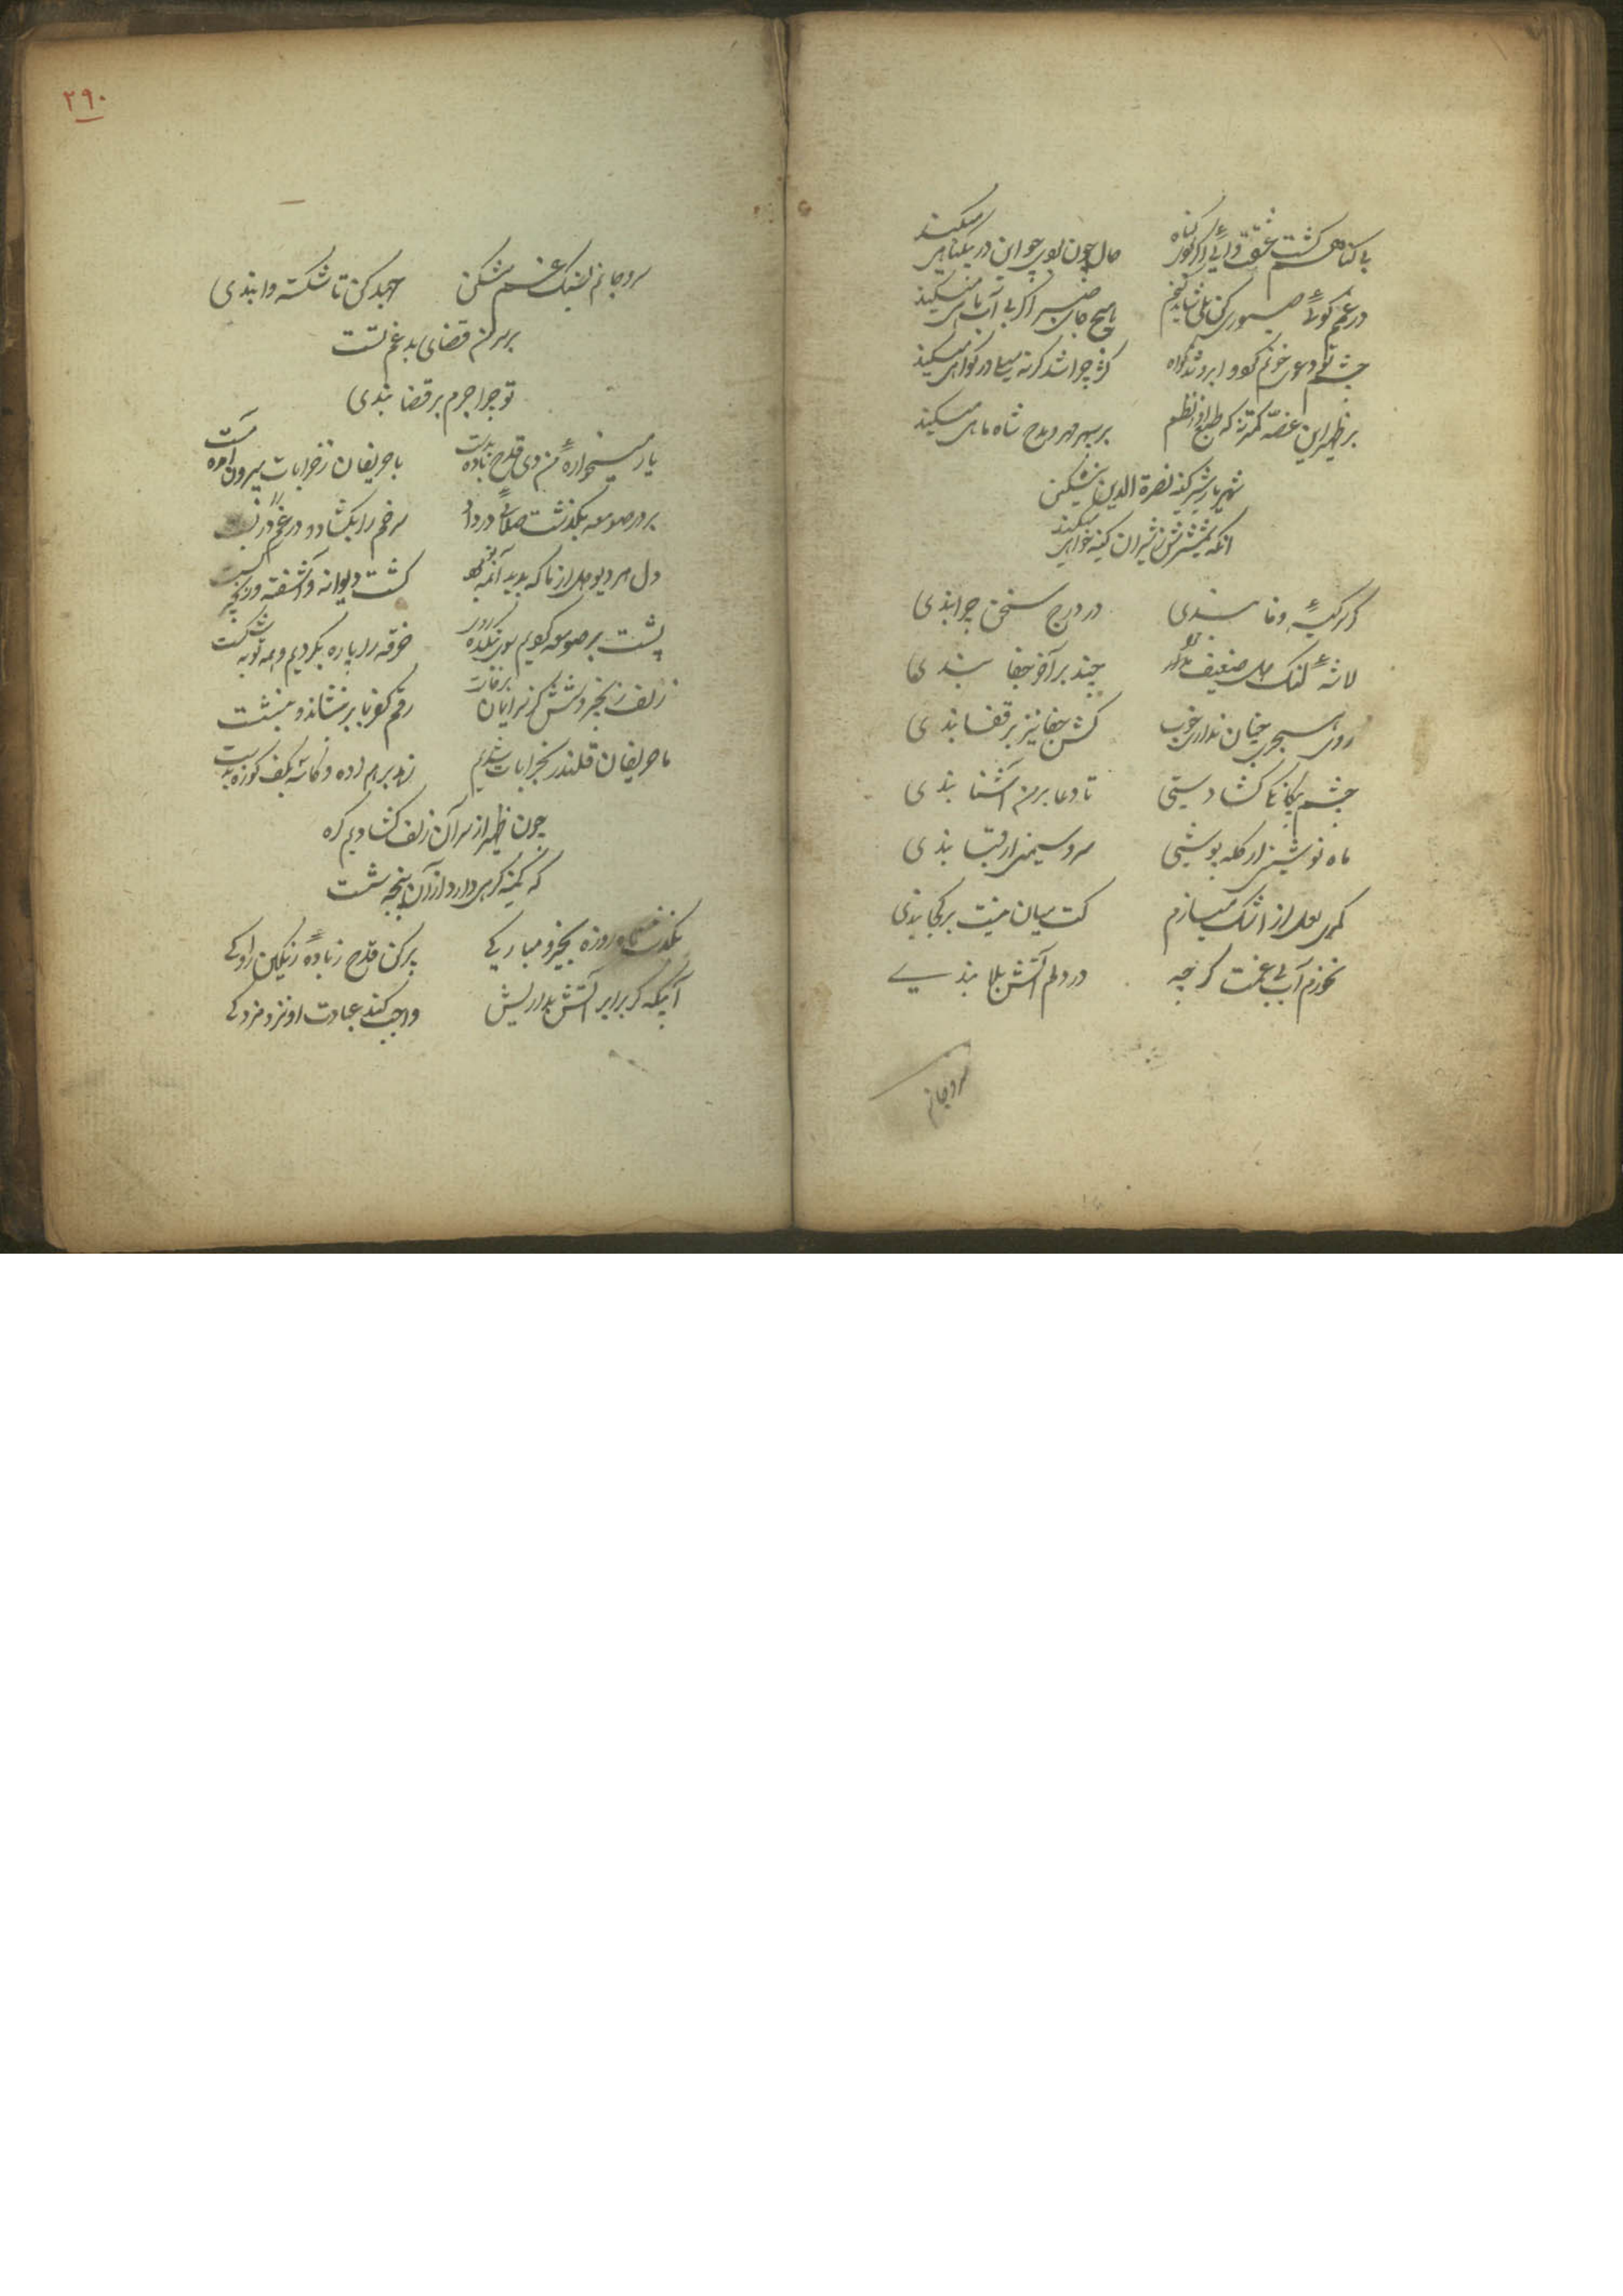 با گناهی گشت عشقت وای اگر بودی گناه حال چون بودی چو این در بیگناهی میکند
در غم گوئی صبوری کن بلی شاید کنم هیچ جای صبر اگر بی آب ماهی میکند
چشم تو دعوی خونم کرد و ابرو شد گواه کژ چرا شد گرنه میل در گواهی میکند
بر ظهیر این غصه کمتر نه که طبع او بنظم بر سپهر مهر و مدح شاه ماهی میکند
شهریار شیر کینه نصرة الدین بیشکین
آنکه شمشیرش ز شیران کینه خواهی میکند
گر کمر وفا بندی در درج سخن چرا بندی
لاشه لنگ دل ضعیف
چند بر آخر جفا بندی
روی هجر چنان نداری خوب کش جفا نیز بر قفا بندی
چشم بیگانگی گشادستی تا وفا بر من آشنا بندی
ماه نو شیر از کله پوشی سرو سیمین در قبا بندی
کمری لعل از اشک میسازم کت میان نیست بر کجا بندی
نخورم آب بی غمت گرچه در دلم آتش بلا بندی
سرو جانم
۲۹۰
سرو جانم بسنگ غم مشکن جهد کن تا شکسته وا بندی
بر سر من قضای بد غم تست
تو چرا جرم بر قضا بندی
یار میخواره من دی قدح باده بدست با حریفان ز خرابات بیرون آمد مست
بر در صومعه بگذشت صلائی در داد سر خم را بگشاد و در غم را در بست
دل هر دیو دل از ما که بدید آنمه نو گشت دیوانه و آشفته و زنجیر گسست
پشت بر صومعه کردیم سوی بتکده روی خرقه را پاره بکردیم و همه توبه شکست
زلف زنجیر وشش کز سر ایمان برخاست رقم کفر بما بر بنشاند و بنشست
با حریفان قلندر بخرابات شدیم زهد بر هم زده و کاسه بکف کوزه بدست
چون ظهیر از سر آن زلف گشادیم گره
که کمینه گرهی دارد از آن پنجه شست
بگذشت ماه روزه بخیر و مبارکی پر کن قدح ز باده رنگین راوکی
آبیکه گر برابر آتش بداریش واجب کند عبادت او نزد مزدکی